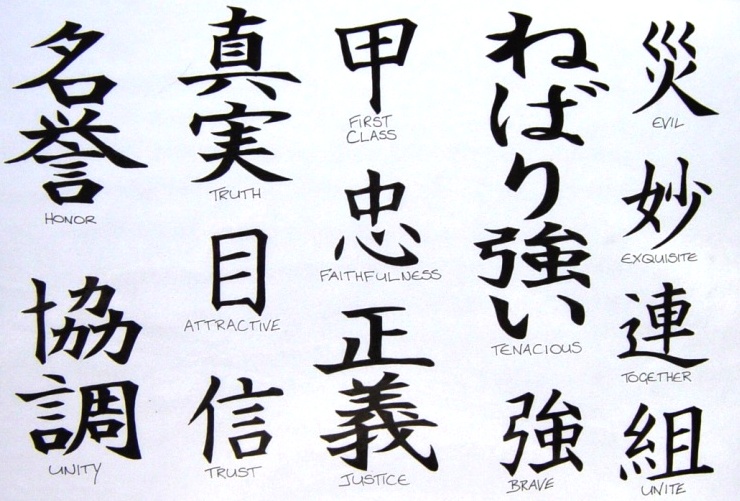 名誉
HONOR
協調
UNITY
真実
TRUTH
目
ATTRACTIVE
信
TRUST
甲
FIRST
CLASS
忠
FAITHFULNESS
正義
JUSTICE
ねばり強い
TENACIOUS
強
BRAVE
災
EVIL
妙
EXQUISITE
連
TOGETHER
組
UNITE